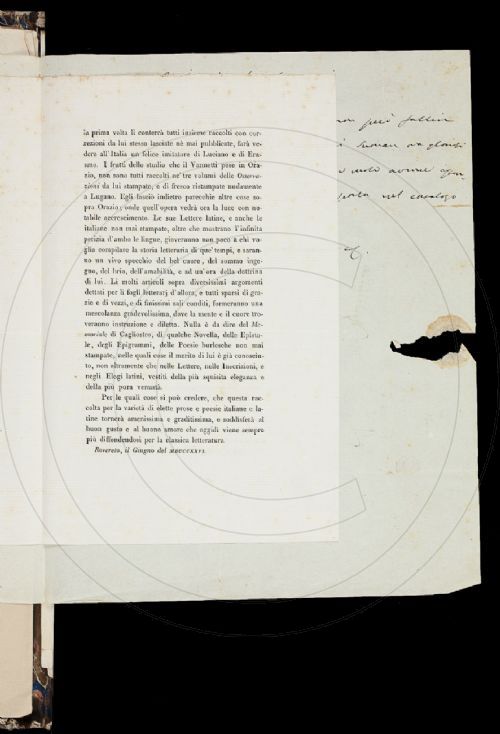 la prima volta li conterrà tutti insieme raccolti con cor-
rezioni da lui stesso lasciate nè mai pubblicate, farà ve-
dere all'Italia un felice imitatore di Luciano e di Era-
smo. I frutti dello studio che il Vannetti pose in Ora-
zio, non sono tutti raccolti ne' tre volumi delle Osserva-
zioni da lui stampate, e di fresco ristampate nudamente
a Lugano. Egli lasciò indietro parecchie altre cose so-
pra Orazio; onde quell'opera vedrà ora la luce con no-
tabile accrescimento. Le sue Lettere latine, e anche le
italiane non mai stampate, oltre che mostrano l'infinita
perizia d'ambo le lingue, gioveranno non poco a chi vo-
glia compilare la storia letteraria di que' tempi, e saran-
no un vivo specchio del bel cuore, del sommo inge-
gno, del brio, dell'amabilità, e ad un'ora della dottrina
di lui. Li molti articoli sopra diversissimi argomenti
dettati per li fogli letterarj d'allora, e tutti sparsi di gra-
zie e di vezzi, e di finissimi sali conditi, formeranno una
mescolanza gradevolissima, dove la mente e il cuore tro-
veranno instruzione e diletto. Nulla è da dire del Me-
moriale di Cagliostro, di qualche Novella, delle Episto-
le, degli Epigrammi, delle Poesie burlesche non mai
stampate, nelle quali cose il merito di lui è già conosciu-
to, non altramente che nelle Lettere, nelle Inscrizioni, e
negli Elogi latini, vestiti della più squisita eleganza e
della più pura venustà.
Per le quali cose si può credere, che questa rac-
colta per la varietà di elette prose e poesie italiane e la-
tine tornerà amenissima e graditissima, e soddisferà al
buon gusto e al buono amore che oggidì viene sempre
più diffondendosi per la classica letteratura.
Rovereto, il Giugno del MDCCCXXVI.
non può fallire
nel catalogo